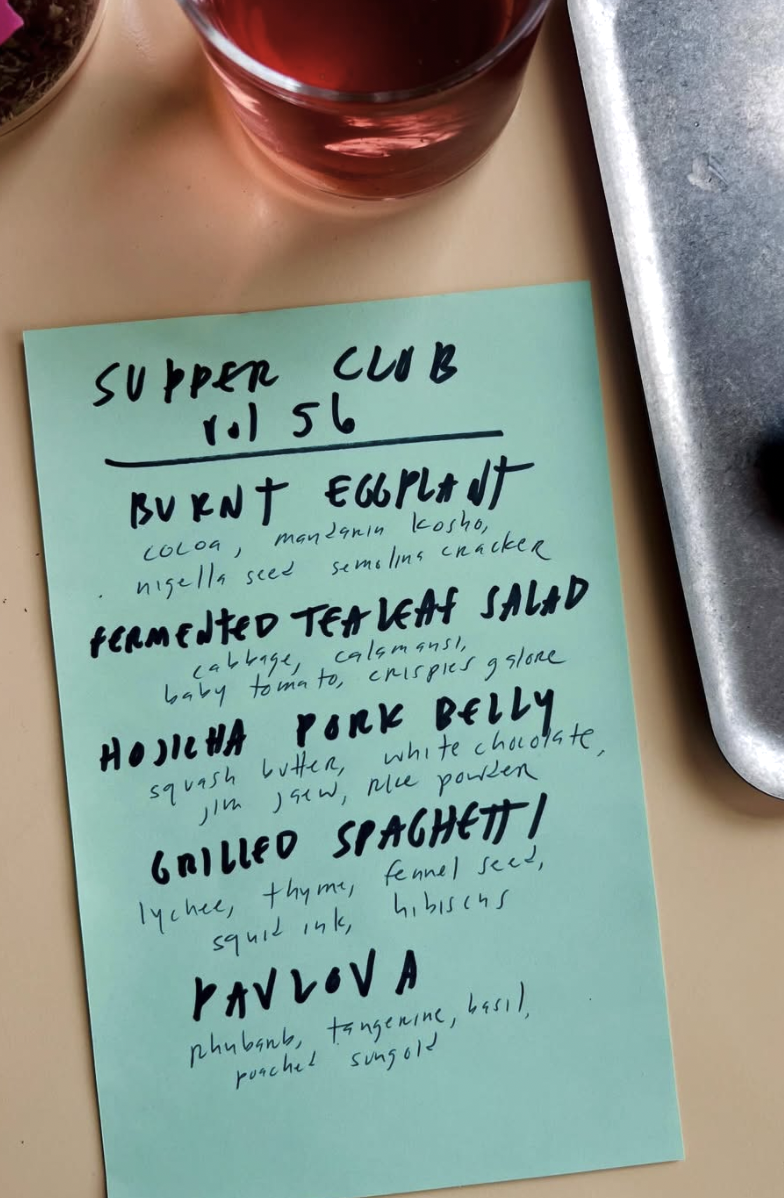 SUPPER CLUB
vol 56
BURNT EGGPLANT
cocoa, mandarin kosho,
nigella seed semolina cracker
FERMENTED TEA LEAF SALAD
cabbage, calamansi,
baby tomato, crispies galore
HOJICHA PORK BELLY
squash butter, white chocolate,
jim jaew, rice powder
GRILLED SPAGHETTI
lychee, thyme, fennel seed,
squid ink, hibiscus
PAVLOVA
rhubarb, tangerine, basil,
poached sungold